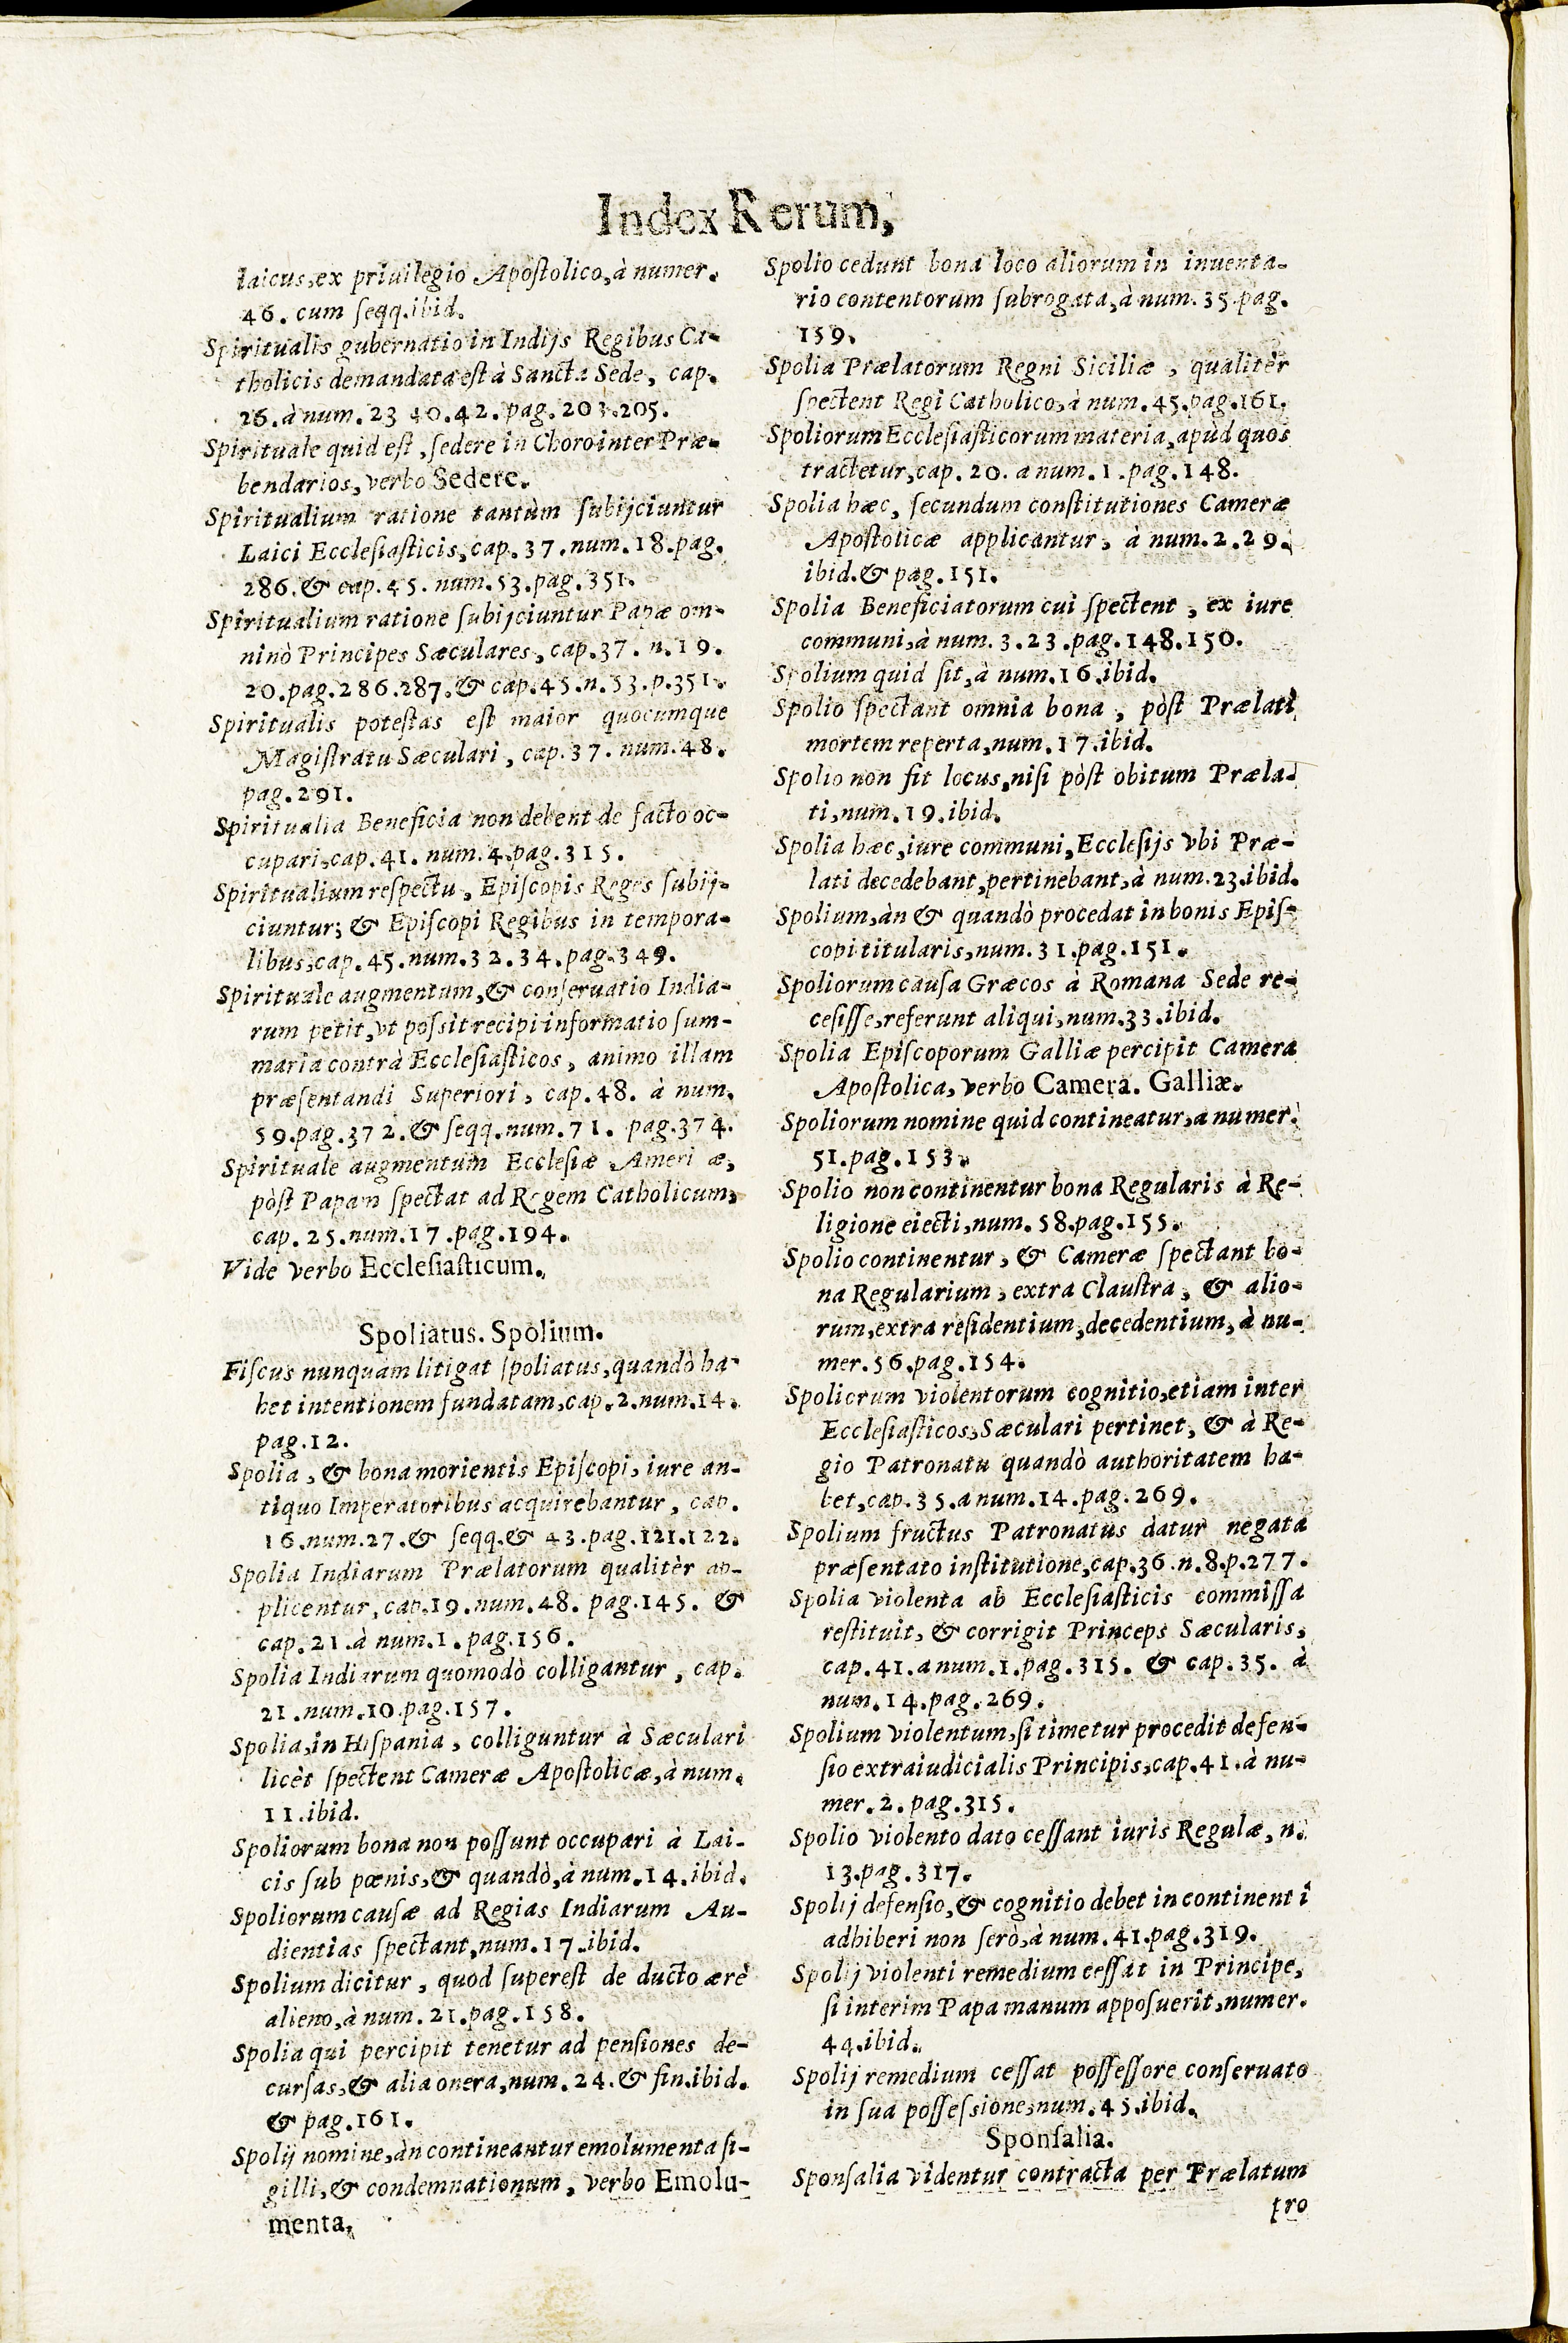 Index Rerum,
laicus, ex priuilegio Apoſtolico, à numer.
46. cum ſeqq. ibid.
Spiritualis gubernatio in Indijs Regibus Ca-
tholicis demandata eſt à Sancta Sede, cap.
26. à num. 23 40. 42. pag. 203. 205.
Spirituale quid eſt, ſedere in Choro inter Præ-
bendarios, verbo Sedere.
Spiritualium ratione tantùm ſubijciuntur
Laici Eccleſiaſticis, cap. 37. num. 18. pag.
286. & cap. 45. num. 53. pag. 351.
Spiritualium ratione ſubijciuntur Papæ om-
ninò Principes Sæculares, cap. 37. n. 19.
20. pag. 286. 287. & cap. 45. n. 53. p. 351.
Spiritualis poteſtas eſt maior quocumque
Magiſtratu Sæculari, cap. 37. num. 48.
pag. 291.
Spiritualia Beneficia non debent de facto oc-
cupari, cap. 41. num. 4. pag. 315.
Spiritualium reſpectu, Epiſcopis Reges ſubij-
ciuntur; & Epiſcopi Regibus in tempora-
libus, cap. 45. num. 32. 34. pag. 349.
Spirituale augmentum, & conſeruatio India-
rum petit, vt poſsit recipi informatio ſum-
maria contrà Eccleſiaſticos, animo illam
præſentandi Superiori, cap. 48. à num.
59. pag. 372. & ſeqq. num. 71. pag. 374.
Spirituale augmentum Eccleſiæ Ameri æ,
pòſt Papam ſpectat ad Regem Catholicum,
cap. 25. num. 17. pag. 194.
Vide verbo Eccleſiaſticum.
Spoliatus. Spolium.
Fiſcus nunquam litigat ſpoliatus, quandò ha-
bet intentionem fundatam, cap. 2. num. 14.
pag. 12.
Spolia, & bona morientis Epiſcopi, iure an-
tiquo Imperatoribus acquirebantur, cap.
16. num. 27. & ſeqq. & 43. pag. 121. 122.
Spolia Indiarum Prælatorum qualitèr ap-
plicentur, cap. 19. num. 48. pag. 145. &
cap. 21. à num. 1. pag. 156.
Spolia Indiarum quomodò colligantur, cap.
21. num. 10. pag. 157.
Spolia, in Hiſpania, colliguntur à Sæculari
licèt ſpectent Cameræ Apoſtolicæ, à num.
11. ibid.
Spoliorum bona non poſſunt occupari à Lai-
cis ſub pœnis, & quandò, à num. 14. ibid.
Spoliorum cauſæ ad Regias Indiarum Au-
dientias ſpectant, num. 17. ibid.
Spolium dicitur, quod ſupereſt de ducto ære
alieno, à num. 21. pag. 158.
Spolia qui percipit tenetur ad penſiones de-
curſas, & alia onera, num. 24. & fin. ibid.
& pag. 161.
Spolij nomine, àn contineantur emolumenta ſi-
gilli, & condemnationum, verbo Emolu-
menta.
Spolio cedunt bona loco aliorum in inuenta-
rio contentorum ſubrogata, à num. 35. pag.
159.
Spolia Prælatorum Regni Siciliæ, qualitèr
ſpectent Regi Catholico, à num. 45. pag. 161.
Spoliorum Eccleſiaſticorum materia, apùd quos
tractetur, cap. 20. a num. 1. pag. 148.
Spolia hæc, ſecundum conſtitutiones Cameræ
Apoſtolicæ applicantur, à num. 2. 29.
ibid. & pag. 151.
Spolia Beneficiatorum cui ſpectent, ex iure
communi, à num. 3. 23. pag. 148. 150.
Spolium quid ſit, à num. 16. ibid.
Spolio ſpectant omnia bona, pòſt Prælati
mortem reperta, num. 17. ibid.
Spolio non fit locus, niſi pòſt obitum Præla-
ti, num. 19. ibid.
Spolia hæc, iure communi, Eccleſijs vbi Præ-
lati decedebant, pertinebant, à num. 23. ibid.
Spolium, àn & quandò procedat in bonis Epiſ-
copi titularis, num. 31. pag. 151.
Spoliorum cauſa Græcos à Romana Sede re-
ceſiſſe, referunt aliqui, num. 33. ibid.
Spolia Epiſcoporum Galliæ percipit Camera
Apoſtolica, verbo Camera. Galliæ.
Spoliorum nomine quid contineatur, a numer.
51. pag. 153.
Spolio non continentur bona Regularis à Re-
ligione eiecti, num. 58. pag. 155.
Spolio continentur, & Cameræ ſpectant bo-
na Regularium, extra Clauſtra, & alio-
rum, extra reſidentium, decedentium, à nu-
mer. 56. pag. 154.
Spoliorum violentorum cognitio, etiam inter
Eccleſiaſticos, Sæculari pertinet, & à Re-
gio Patronatu quandò authoritatem ha-
bet, cap. 35. a num. 14. pag. 269.
Spolium fructus Patronatus datur negata
præſentato inſtitutione, cap. 36. n. 8. p. 277.
Spolia violenta ab Eccleſiaſticis commiſſa
reſtituit, & corrigit Princeps Sæcularis,
cap. 41. a num. 1. pag. 315. & cap. 35. à
num. 14. pag. 269.
Spolium violentum, ſi timetur procedit defen-
ſio extraiudicialis Principis, cap. 41. à nu-
mer. 2. pag. 315.
Spolio violento dato ceſſant iuris Regulæ, n.
13. pag. 317.
Spolij defenſio, & cognitio debet in continenti
adhiberi non ſerò, à num. 41. pag. 319.
Spolij violenti remedium ceſſat in Principe,
ſi interim Papa manum appoſuerit, numer.
44. ibid.
Spolij remedium ceſſat poſſeſſore conſeruato
in ſua poſſeſsione, num. 45. ibid.
Sponſalia.
Sponſalia videntur contracta per Prælatum
pro